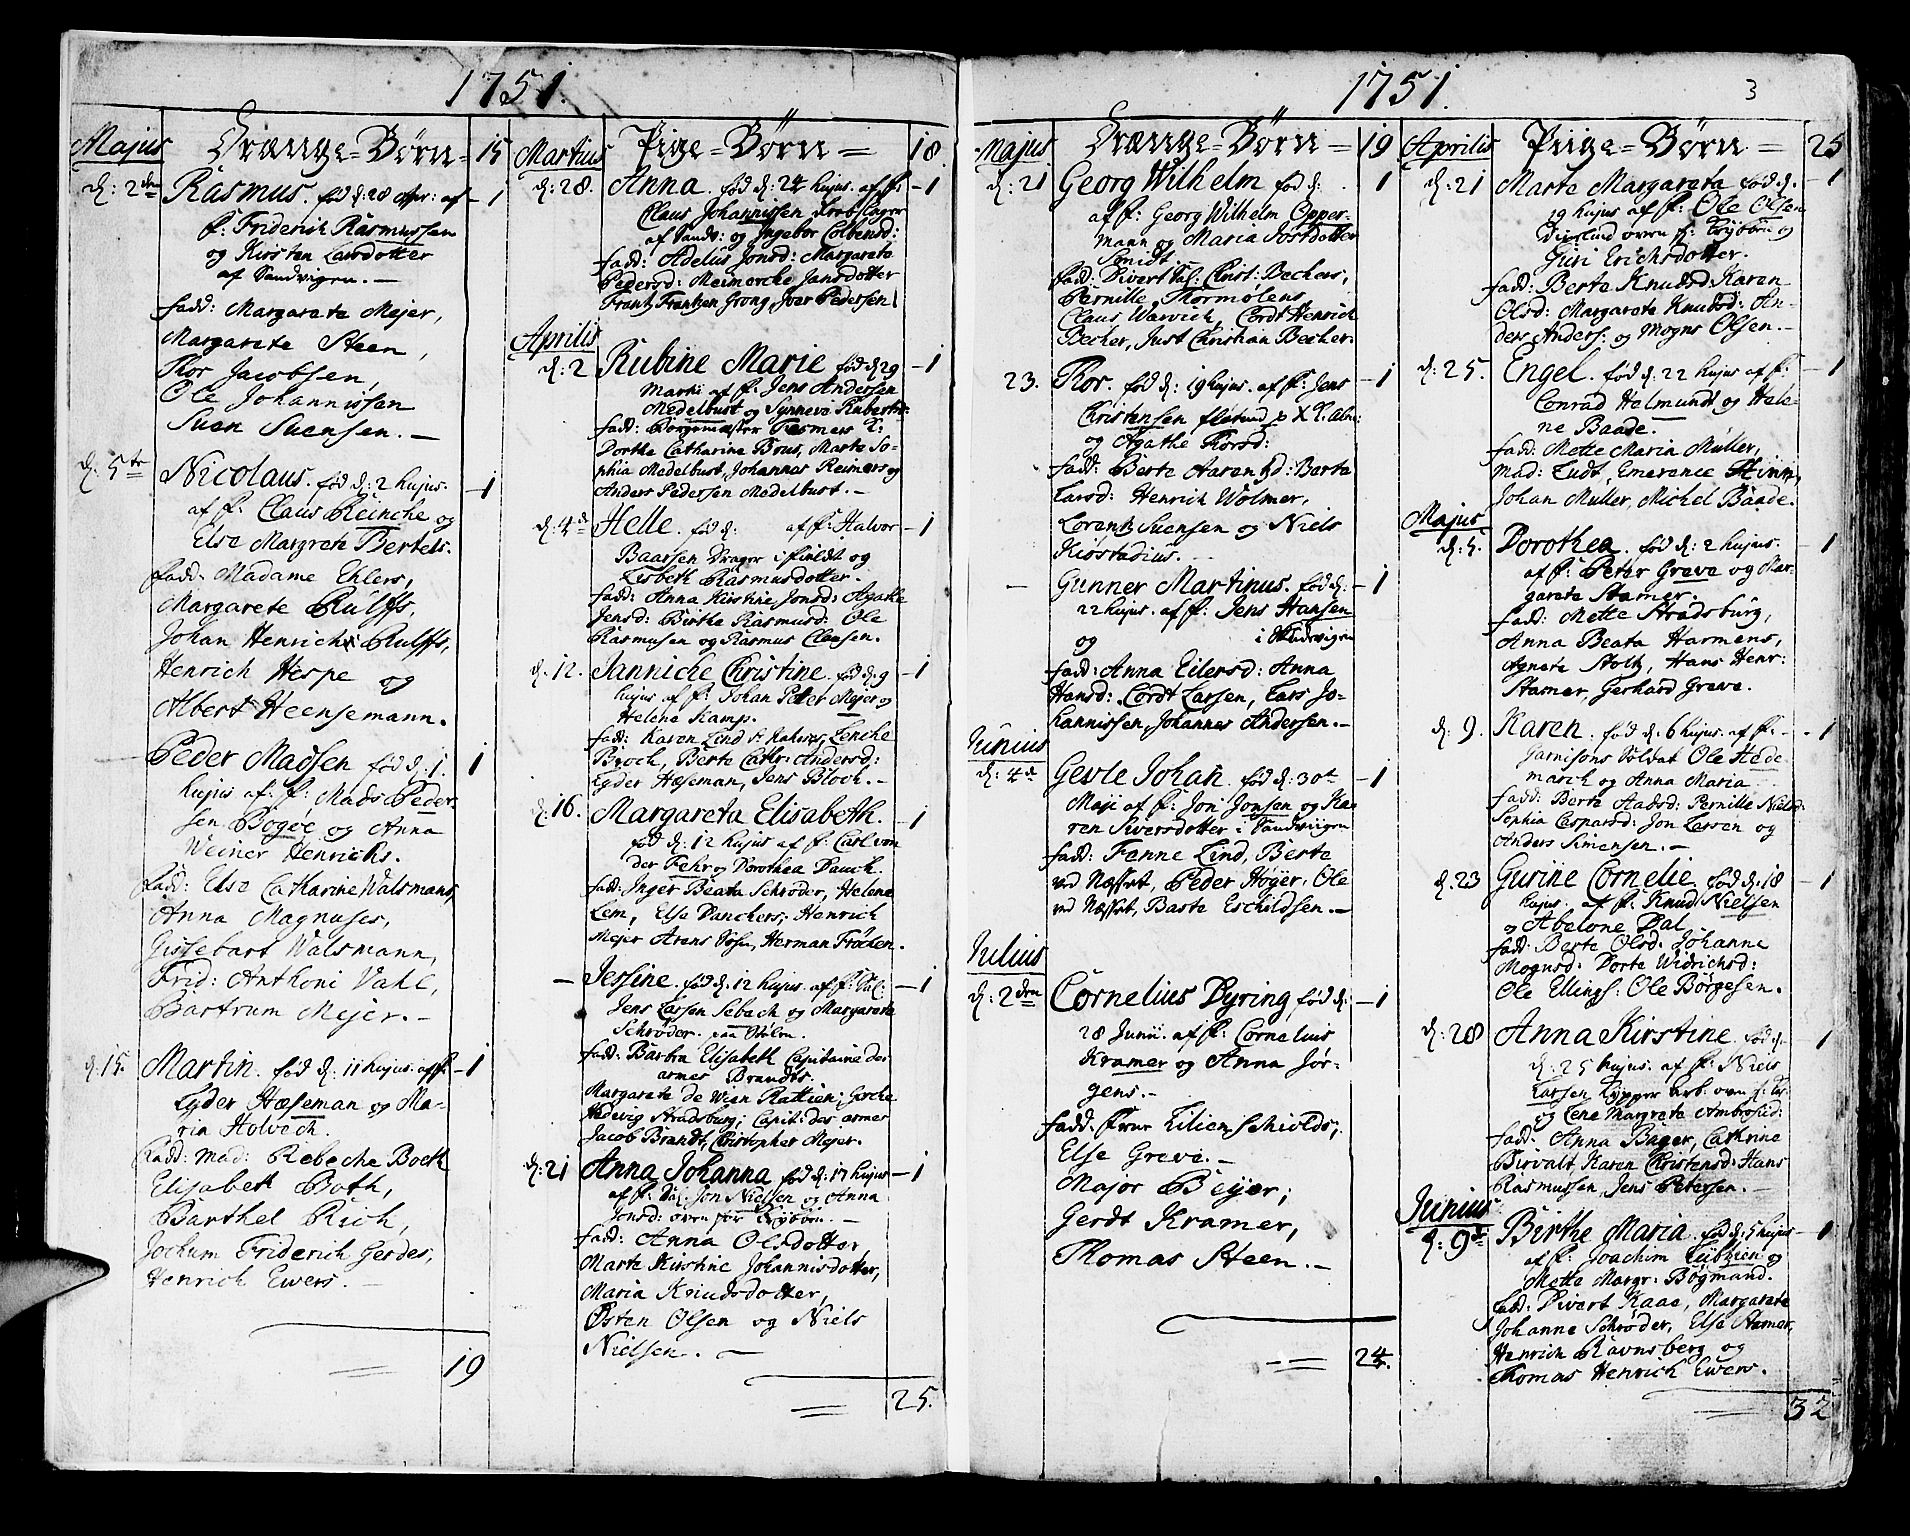 1751.
Majus
Drænge-Børn
15
d: 2den
Rasmus. fød d: 28 Apr: af
1
f: Friderich Rasmussen
og Kirsten Larsdotter
af Sandvigen.
fadd: Margareta Mejer,
Margareta Steen,
Thor Jacobsen,
Ole Johannissen
Suen Suensen.
d: 5te
Nicolaus. fød d: 2 hujus.
1
af f: Claus Reinche og
Else Margrete Bertels.
fadd: Madame Ehlers,
Margareta Rulffs,
Johan Henrich Rulffs,
Henrich Hespe og
Albert Heensemann.
Peder Madsen fød d: 1.
1
hujus af f: Mads Peder-
sen Bogøe og Anna
Weiner Henrichs.
fadd: Else Catharine Walsmans,
Anna Magnuses,
Gissebart Walsmann,
Frid: Anthoni Vahl,
Bartrum Mejer.
d: 15.
Martin. fød d: 11 hujus. af f:
1
Lyder Hæseman og Ma-
ria Holvech.
fadd: Mad: Rebeche Both
Elisabeth Both,
Barthel Rich,
Jochum Friderich Gerdes,
Henrich Ewers.
19
Martius
Pige-Børn
18.
d: 28.
Anna. fød d: 24 hujus. af f:
1
Claus Johannissen Rebslager
af Sandv: og Ingebor Colbensd:
fadd: Adelus Jonsd: Margareta
Pedersd: Meimerche Jansdotter
Frantz Frantzen Grong Joer Pedersen
Aprilis
d: 2
Rubine Marie fød d: 29
1
Martii af f: Jens Andersen
Medelbust og Synneve Rubertsd:
fadd: Borgemester Fesmers K:
Dorthe Catharina Bous, Marta So-
phia Medelbust, Johannes Reimers og
Anders Pedersen Medelbust.
d: 4de
Helle. fød d: af f: Halvor
1
Baarsen Drager i fieldt og
Lisbeth Rasmusdotter.
fadd: Anna Kirstine Jonsd: Agathe
Jensd: Birthe Rasmusd: Ole
Rasmusen og Rasmus Clausen.
d. 12.
Janniche Christine. fød d: 9
1
hujus af f: Johan Peter Mejer og
Helena Kamp.
fadd: Karen Lind Lenche
Bloch, Berte Cathr: Andersd:
Lyder Hæseman, Jens Bloch.
d: 16.
Margareta Elisabeth.
1
fød d: 12 hujus af f: Carl von
der Fehr og Dorothea Dauch.
fadd: Inger Beata Schrøder, Helena
Lem, Else Danchers, Henrich
Mejer Arens Søn, Herman Fröchen.
Jessine. fød d: 12 hujus. af f: Sal:
1
Jens Lassen Sebach og Margareta
Schrøder. paa Stølen.
fadd: Barbra Elisabeth Capitaine des
armes Brandts.
Margareta de Wien Rattien; Gerche
Hedevig Stradsburg; Capit: des armes
Jacob Brandt, Cristopher Mejer.
d: 21
Anna Johanna fød d: 17 hujus
1
af f: Sal: Jon Nielsen og Anna
Jonsd: oven for Tejbøen.
fadd: Anna Olsdotter,
Marte Kirstine Johannisdotter,
Maria Knudsdotter,
Østen Olsen og Niels
Nielsen.
25.
1751.
3
Majus
Drænge-Børn
19
d: 21
Georg Wilhelm fød d:
1
af f: Georg Wilhelm Opper-
mann og Maria Jostdotter
Smidt.
fadd: Divert Sal: Christ: Bechers,
Pernille Thormølens
Claus Warvich, Cordt Henrich
Becher, Just Christian Becher.
23.
Thor. fød d: 19 hujus. af f: Jens
1
Christensen
og Agathe Torsd:
fadd: Berte Aarentzd: Berta
Larsd: Henrich Wolmer,
Lorentz Suensen og Niels
Kiøstadius.
Gunner Martinus. fød d:
1
22 hujus. af f: Jens Hansen
og i Sandvigen
fadd: Anna Eilersd: Anna
Hansd: Cordt Larsen, Lars Jo-
hannissen, Johannes Andersen.
Junius
d: 4de
Gevle Johan. fød d: 30te
1
Maji af f: Jon Jonsen og Ka-
ren Siversdotter i Sandviigen
fadd: Fenne Lind, Berte
ved Næsset, Peder Høyer, Ole
ved Næsset, Baste Eschildsen.
Julius
d: 2den
Cornelius Dyring fød d:
1
28 Junii. af f: Cornelius
Kramer og Anna Jør-
gens.
fadd. Frue Lilienschiolds,
Else Greve.
Major Beyer;
Gerdt Kramer,
Thomas Steen.
24.
Aprilis
Piige-Børn
25
d: 21
Marte Margareta fød d.
1
19 hujus af f: Ole Olsen
oven f: Tejbøen og
Guri Erichsdotter.
fadd: Berte Knudsd: Karen
Olsd: Margareta Knudsd: An-
ders Anders: og Mogns Olsen.
d: 25.
Engel. fød d: 22 hujus af f:
1
Conrad Helmundt og Hele-
ne Baade.
fadd: Mette Maria Müller,
Mad: Ludt, Emerence Hinn,
Johan Muller, Michel Baade.
Majus
d: 5.
Dorothea. fød d: 2 hujus.
1
af f: Peter Greve og Mar-
gareta Stamer.
fadd: Mette Stradsburg,
Anna Beata Harmens,
Agneta Stoltz, Hans Henr:
Stamer, Gerhard Greve.
d: 9.
Karen. fød d: 6 hujus. af f:
1
Garnisons Soldat Ole Hede-
march og Anna Maria
fadd: Berte Aadsd: Pernille Nielsd:
Sophia Caspersd: Jon Larsen og
Anders Simensen.
d: 23
Gurine Cornelie. fød d: 18
1
hujus. af f: Knud Nielsen
og Abelone Dal
fadd: Berte Olsd: Johanne
Mognsd: Dorte Widrichsd:
Ole Ellings: Ole Børgesen.
d: 28
Anna Kirstine. fød
1
d: 25 hujus. af f: Niels
Larsen Kypper arb: oven f: Tej:
og Lene Margreta Ambrosid:
fadd: Anna Bager, Cathrine
Birvalt, Karen Christensd: Hans
Rasmussen, Jens Petersen.
Junius
d: 9de
Birthe Maria. fød d: 5 hujus
1
af f: Joachim Lubchen og
Mette Margr: Bøgmand.
fadd: Divert Kaae, Margareta
Johanne Schrøder, Else Stamer,
Henrich Ravnsberg og
Thomas Henrich Ewers.
32